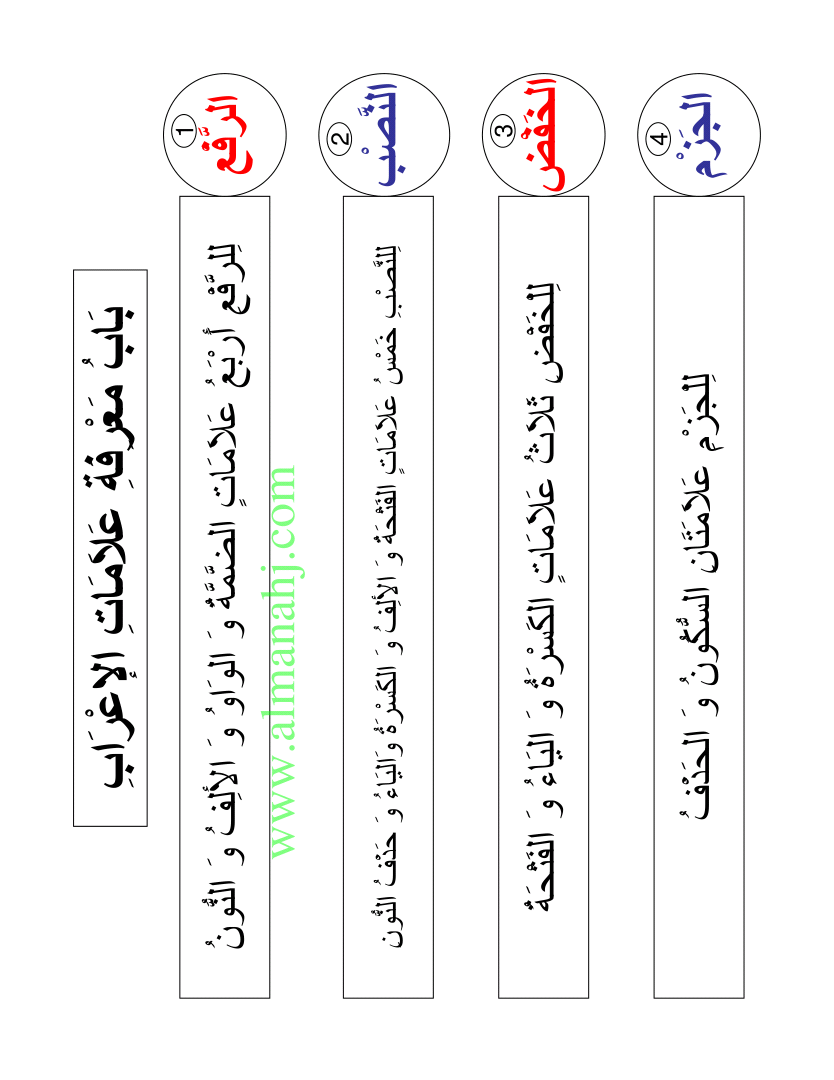 بَابُ مَعْرِفَةِ عَلَامَاتِ الإِعْرَابِ
1
الرَّفْع
لِلرَّفْعِ أَرْبَعُ عَلَامَاتٍ الضَّمَّةُ وَ الوَاوُ وَ الأَلِفُ وَ النُّونُ
2
النَّصْبْ
لِلنَّصْبِ خَمْسُ عَلَامَاتٍ الفَتْحَةُ وَ الأَلِفُ وَ الكَسْرَةُ وَاليَاءُ وَ حَذْفُ النُّون
3
الخَفْض
لِلْخَفْضِ ثَلَاثُ عَلَامَاتٍ الكَسْرَةُ وَ اليَاءُ وَ الفَتْحَةُ
4
الجَزْم
لِلْجَزْمِ عَلَامَتَان السُّكُونُ وَ الحَذْفُ
www.almanahj.com